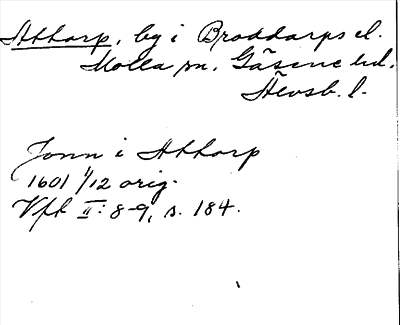 Attarp, by i Broddarps el.
Molla sn. Gäsene hd.
Älvsb. l.
Jonn i Attarp
1601 1/12 orig.
Vft II: 8-9, s. 184.